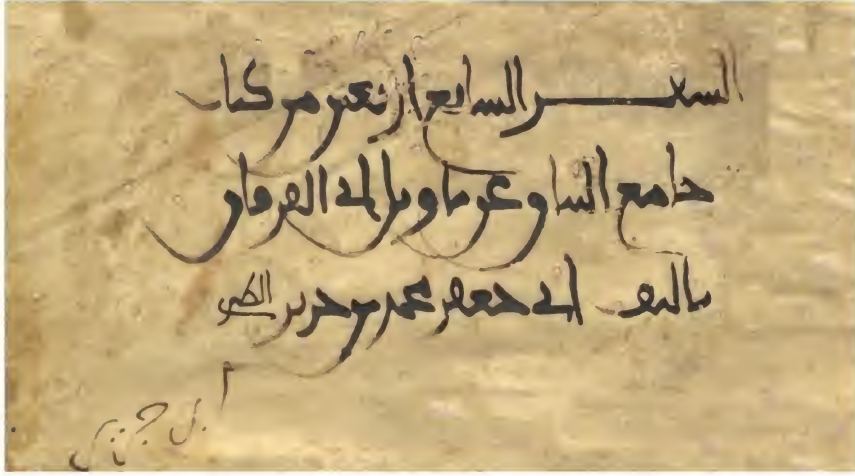 السفر السابع اربعين من كتاب
جامع البيان عن تاويل اي الفرقان
تاليف ابي جعفر محمد بن جرير الطبري